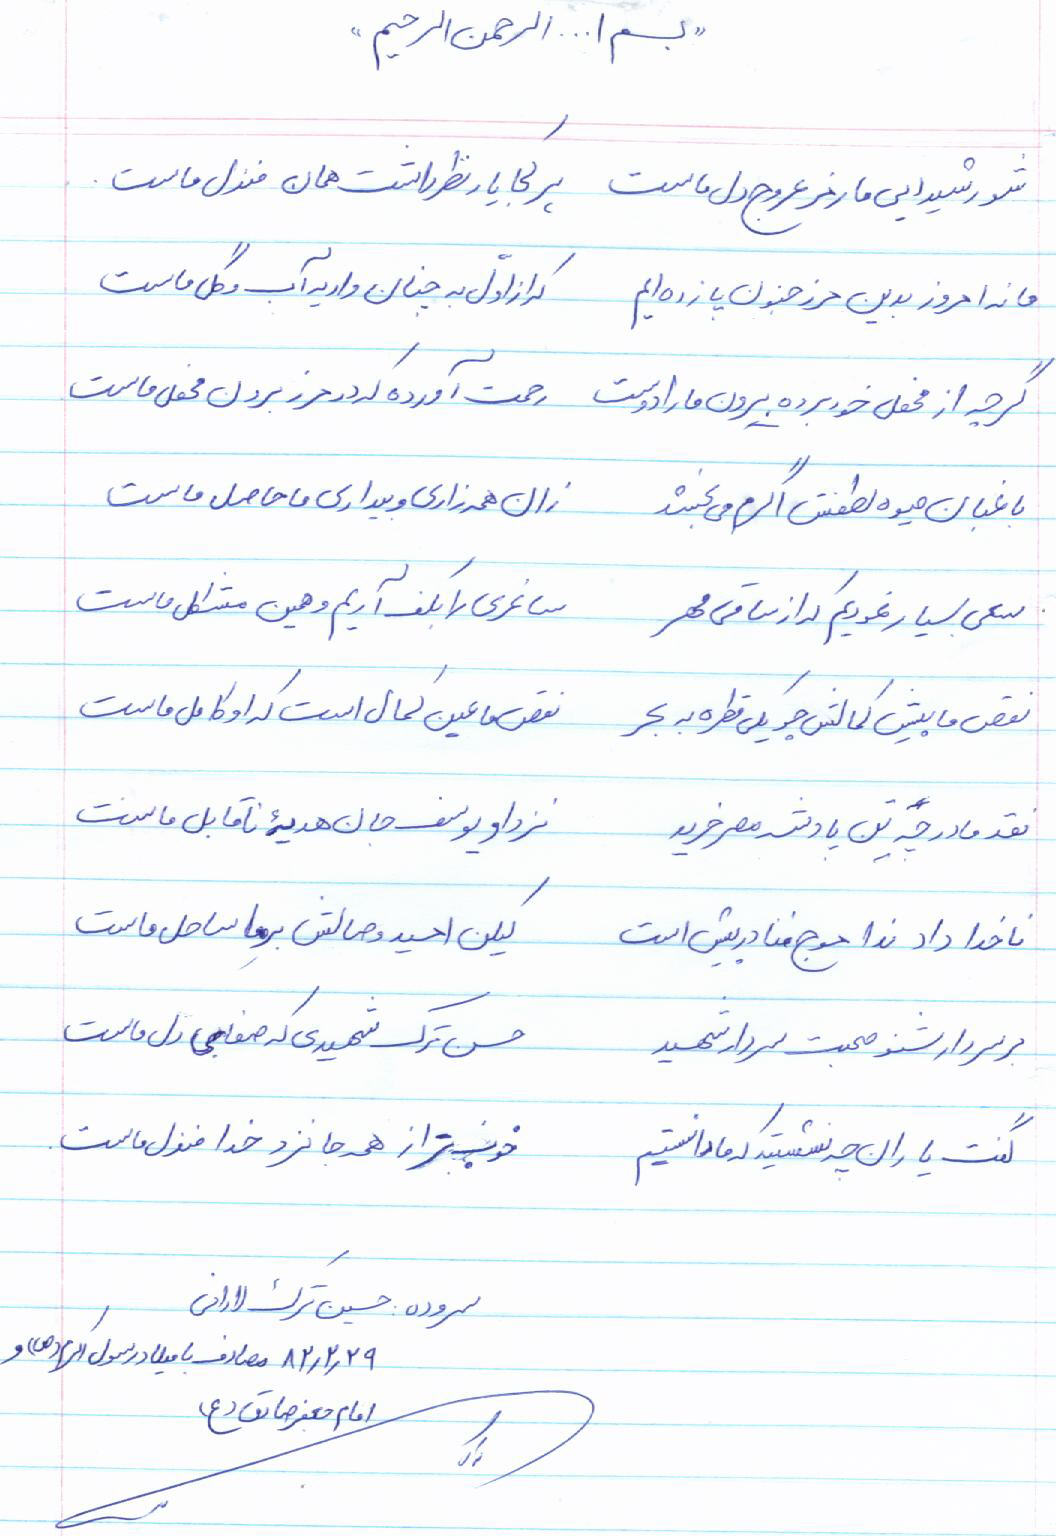 «بسم ا... الرحمن الرحیم»
شور شیدایی ما رخ عروج دل ماست هر کجا یار نظر داشت همان منزل ماست.
ما نه امروز بدین مرز جنون پا زده ایم که از اوّل به چنان وادیه آب و گل ماست
گرچه از محفل خود برده بیرون ما را دوست رحمت آورده که در مرز برون محفل ماست
باغبان میوه لطفش اگرم می بخشد زان همه زاری و بیداری ما حاصل ماست
سعی بسیار نمودیم که از ساقی مهر ساغری را بکف آریم و همین مشکل ماست
نقص ما پیش کمالش چو یکی قطره به بحر نقص ما عین کمال است که او کامل ماست
نقد ما در چَه تن پادشه مصر خرید نزد او یوسف جان هدیهٔ ناقابل ماست
ناخدا داد ندا موج فنا در پیش است لیکن امید وصالش بر ما ساحل ماست
بر سردار شنو صحبت سردار شهید حسن ترک شهیدی که صفابخی دل ماست
گفت یاران چه نشستید که ما دانستیم خوب تر از همه جا نزد خدا منزل ماست.
سروده: حسین ترک لادانی
۸۲/۲/۲۹ مصادف با میلاد رسول اکرم (ص) و
امام جعفر صادق (ع)